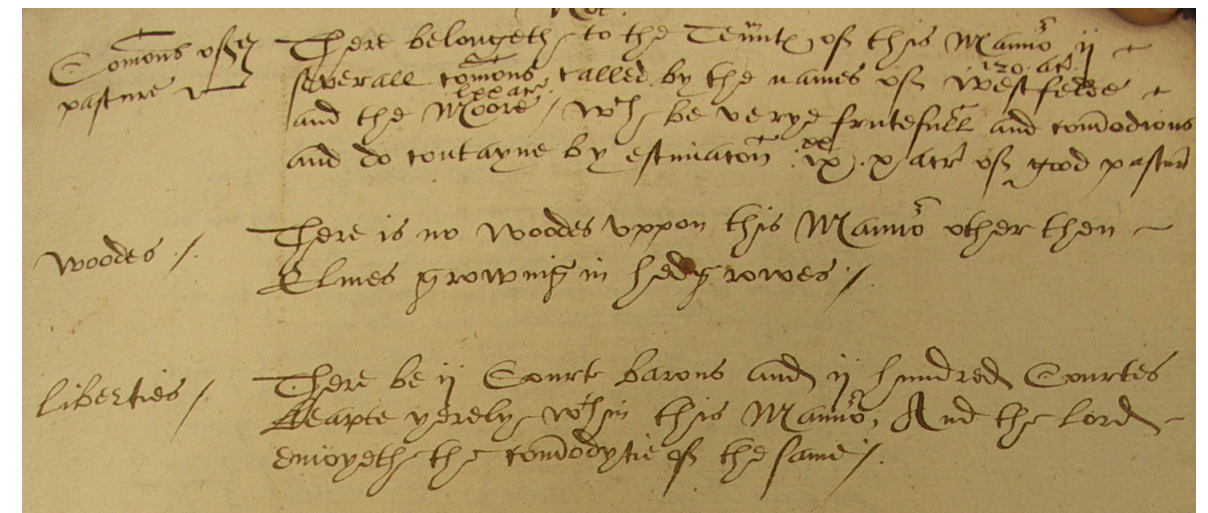 Comons off
pasture
There belongeth to the Tennts off this Mannor ij
severall comons, called by the names off westfelde
120 acr
and the Moore / wch be verye frutefull and comodious
lxx acr
and do contayne by estimacon ix xx x acr off good pasture
woodes /
There is no woodes uppon this Mannor other then
Elmes growing in hedgrowes /
liberties /
There be ij Courte barons and ij hundred Courtes
keapte yerely wthin this Mannor, And the lord
enioyeth the comodytie off the same /